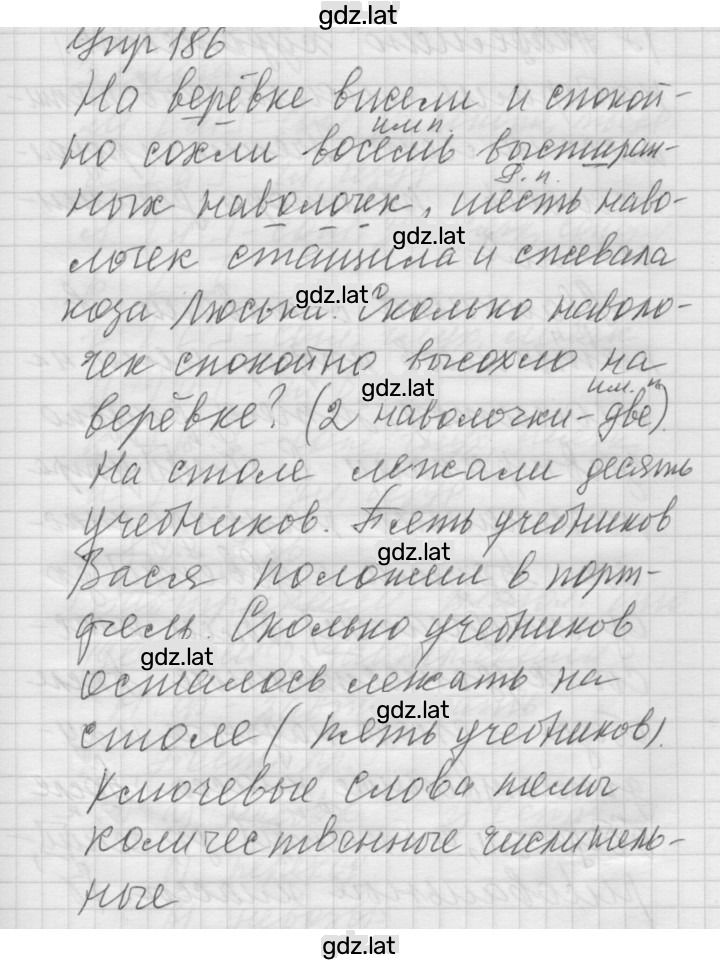 gdz.lat
Упр 186
На верёвке висели и спокой-
им п.
но сохли восемь выстиран-
в. п.
ных наволочек, шесть наво-
gdz.lat
лочек стащила и сжевала
gdz.lat
коза Люська. Сколько наволо-
чек спокойно высохло на
gdz.lat
им. п
верёвке? (2 наволочки - две).
На столе лежали десять
учебников. Пять учебников
gdz.lat
Вася положил в порт-
фель. Сколько учебников
gdz.lat
осталось лежать на
gdz.lat
столе (пять учебников).
Ключевые слова темы
количественные числитель-
ные
gdz.lat